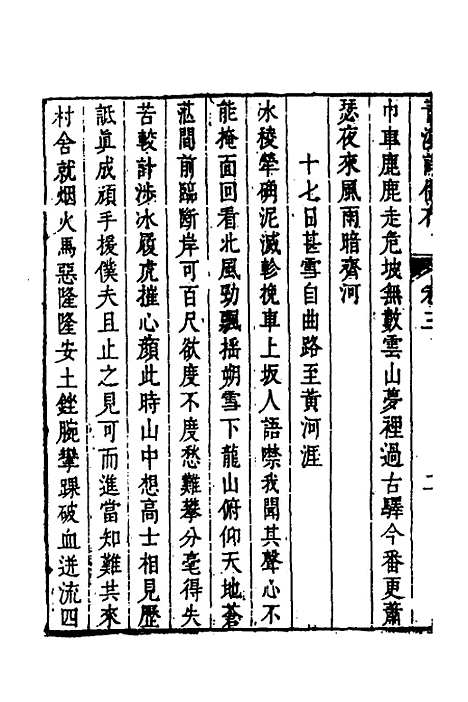 卷三
二
巾車鹿鹿走危坡無數雲山夢裡過古驛今番更蕭
瑟夜來風雨暗齊河
十七日甚雪自曲路至黃河涯
冰稜犖确泥滅軫挽車上坂人語噤我聞其聲心不
能掩面回看北風勁飄揺朔雪下龍山俯仰天地蒼
茫間前臨斷岸可百尺欲度不度愁難攀分毫得失
苦較計渉冰履虎摧心顏此時山中想高士相見歷
詆眞成頑手援僕夫且止之見可而進當知難共來
村舍就烟火馬惡隆隆安土銼腕攣踝破血迸流四